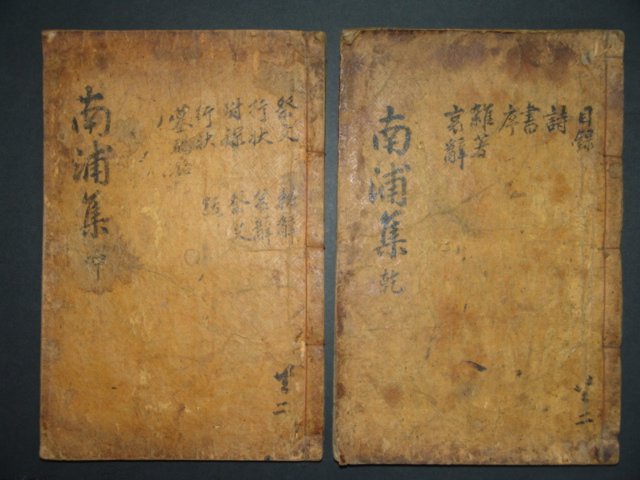 南浦集 乾
目錄
詩
書
序
雜著
哀辭
共二
南浦集 坤
祭文
行狀
附錄
行狀 跋
墓碣銘
輓辭
哀辭
祭文
共二